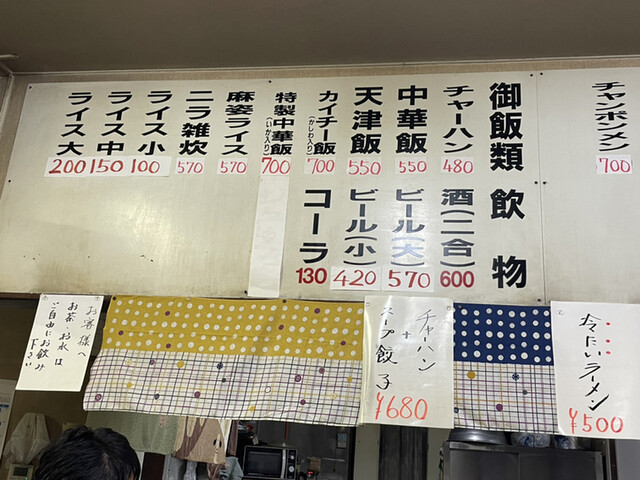 チャンポンメン 700
御飯類
チャーハン 480
中華飯 550
天津飯 550
カイチー飯 (かしわ入り) 700
特製中華飯 (いか入り) 700
麻姿ライス 570
ニラ雑炊 570
ライス小 100
ライス中 150
ライス大 200
飲物
酒(二合) 600
ビール(大) 570
ビール(小) 420
コーラ 130
冷たいラーメン
¥500
チャーハン
+
スープ餃子
¥680
お客様へ
お茶・お水は
ご自由にお飲み
下さい